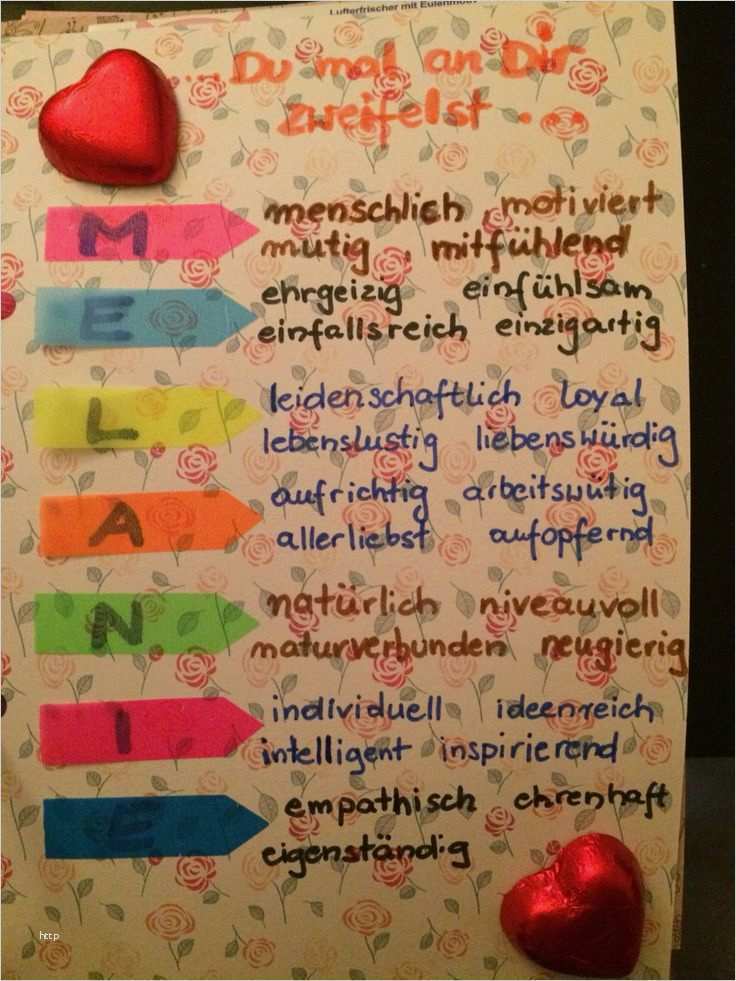 Lufterfrischer mit Eulenmotiv
... Du mal an Dir
zweifelst ...
M menschlich, motiviert
mutig, mitfühlend
E ehrgeizig einfühlsam
einfallsreich einzigartig
L leidenschaftlich loyal
lebenslustig liebenswürdig
A aufrichtig arbeitswütig
allerliebst aufopfernd
N natürlich niveauvoll
naturverbunden neugierig
I individuell ideenreich
intelligent inspirierend
E empathisch ehrenhaft
eigenständig
http